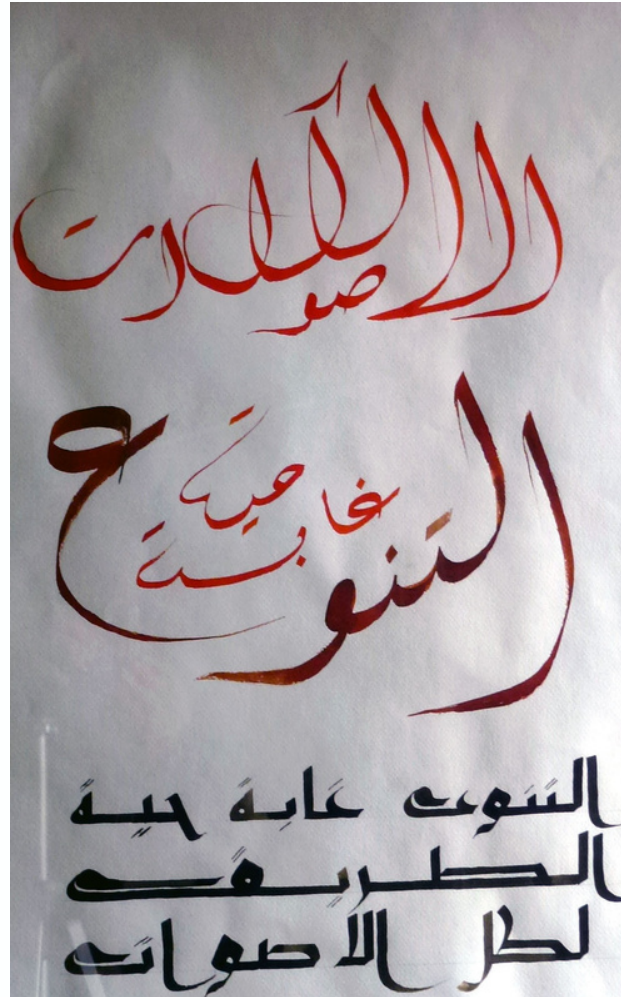 الأصوات
التنوع
غابة
حية
التنوع غابة حية
الطريق
لكل الأصوات